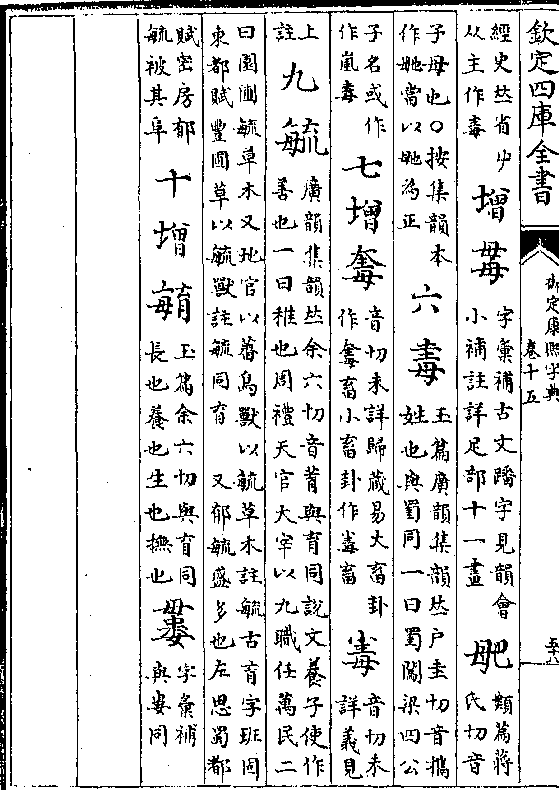 欽定四庫全書
御定康熙字典
卷十五
經史𠀤省屮
从主作毒
增
字彙補古文蹯字見韻會
小補註詳足部十一畫
毑
類篇蔣
氏切音
子母也○按集韻本
作她當以她為正
六
玉篇廣韻集韻𠀤戶圭切音攜
姓也與蜀同一曰蜀闖梁四公
子名或作
作嵐毒
七增
音切未詳歸藏易大畜卦
作 畜小畜卦作 畜
音切未
詳義見
上
註
九
毓
廣韻集韻𠀤余六切音育與育同說文養子使作
善也一曰稚也周禮天官大宰以九職任萬民二
曰園圃毓草木又地官以蕃鳥獸以毓草木註毓古育字班固
東都賦豐圃草以毓獸註毓同育 又郁毓盛多也左思蜀都
賦密房郁
毓被其阜
十
增
玉篇余六切與育同
長也養也生也撫也
字彙補
與婁同